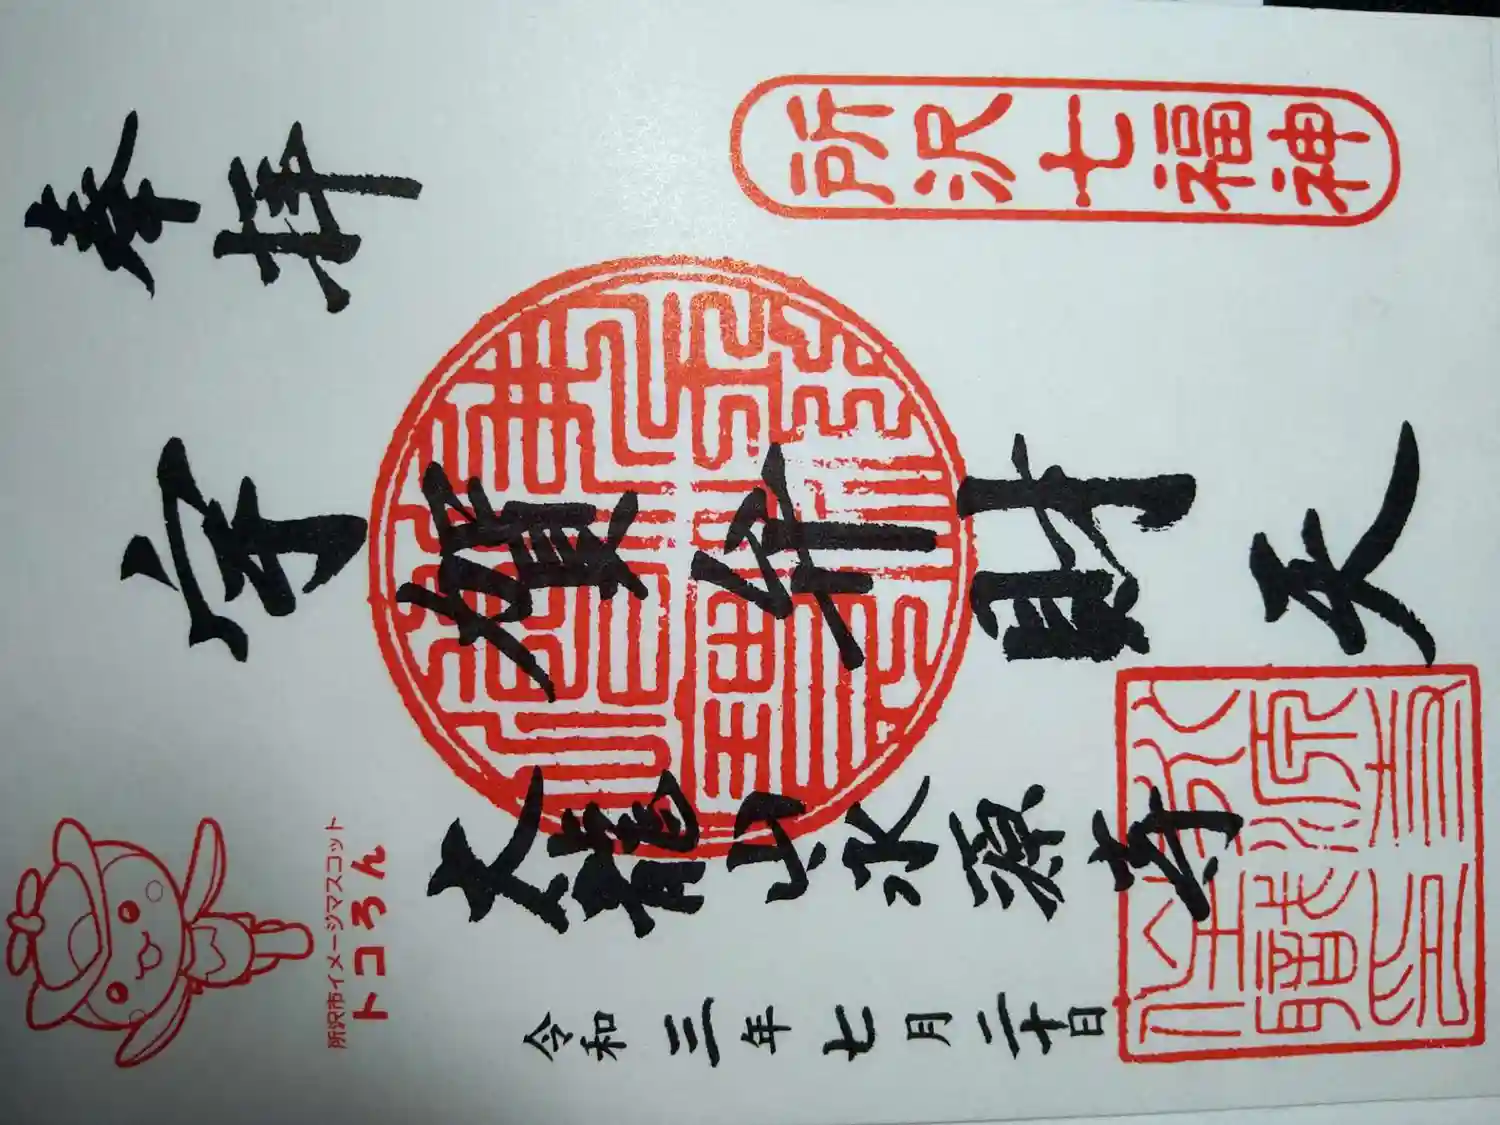 所沢七福神
奉拝
宇賀弁財天
大龍山水源寺
令和三年七月二十日
所沢市イメージマスコット
トコろん